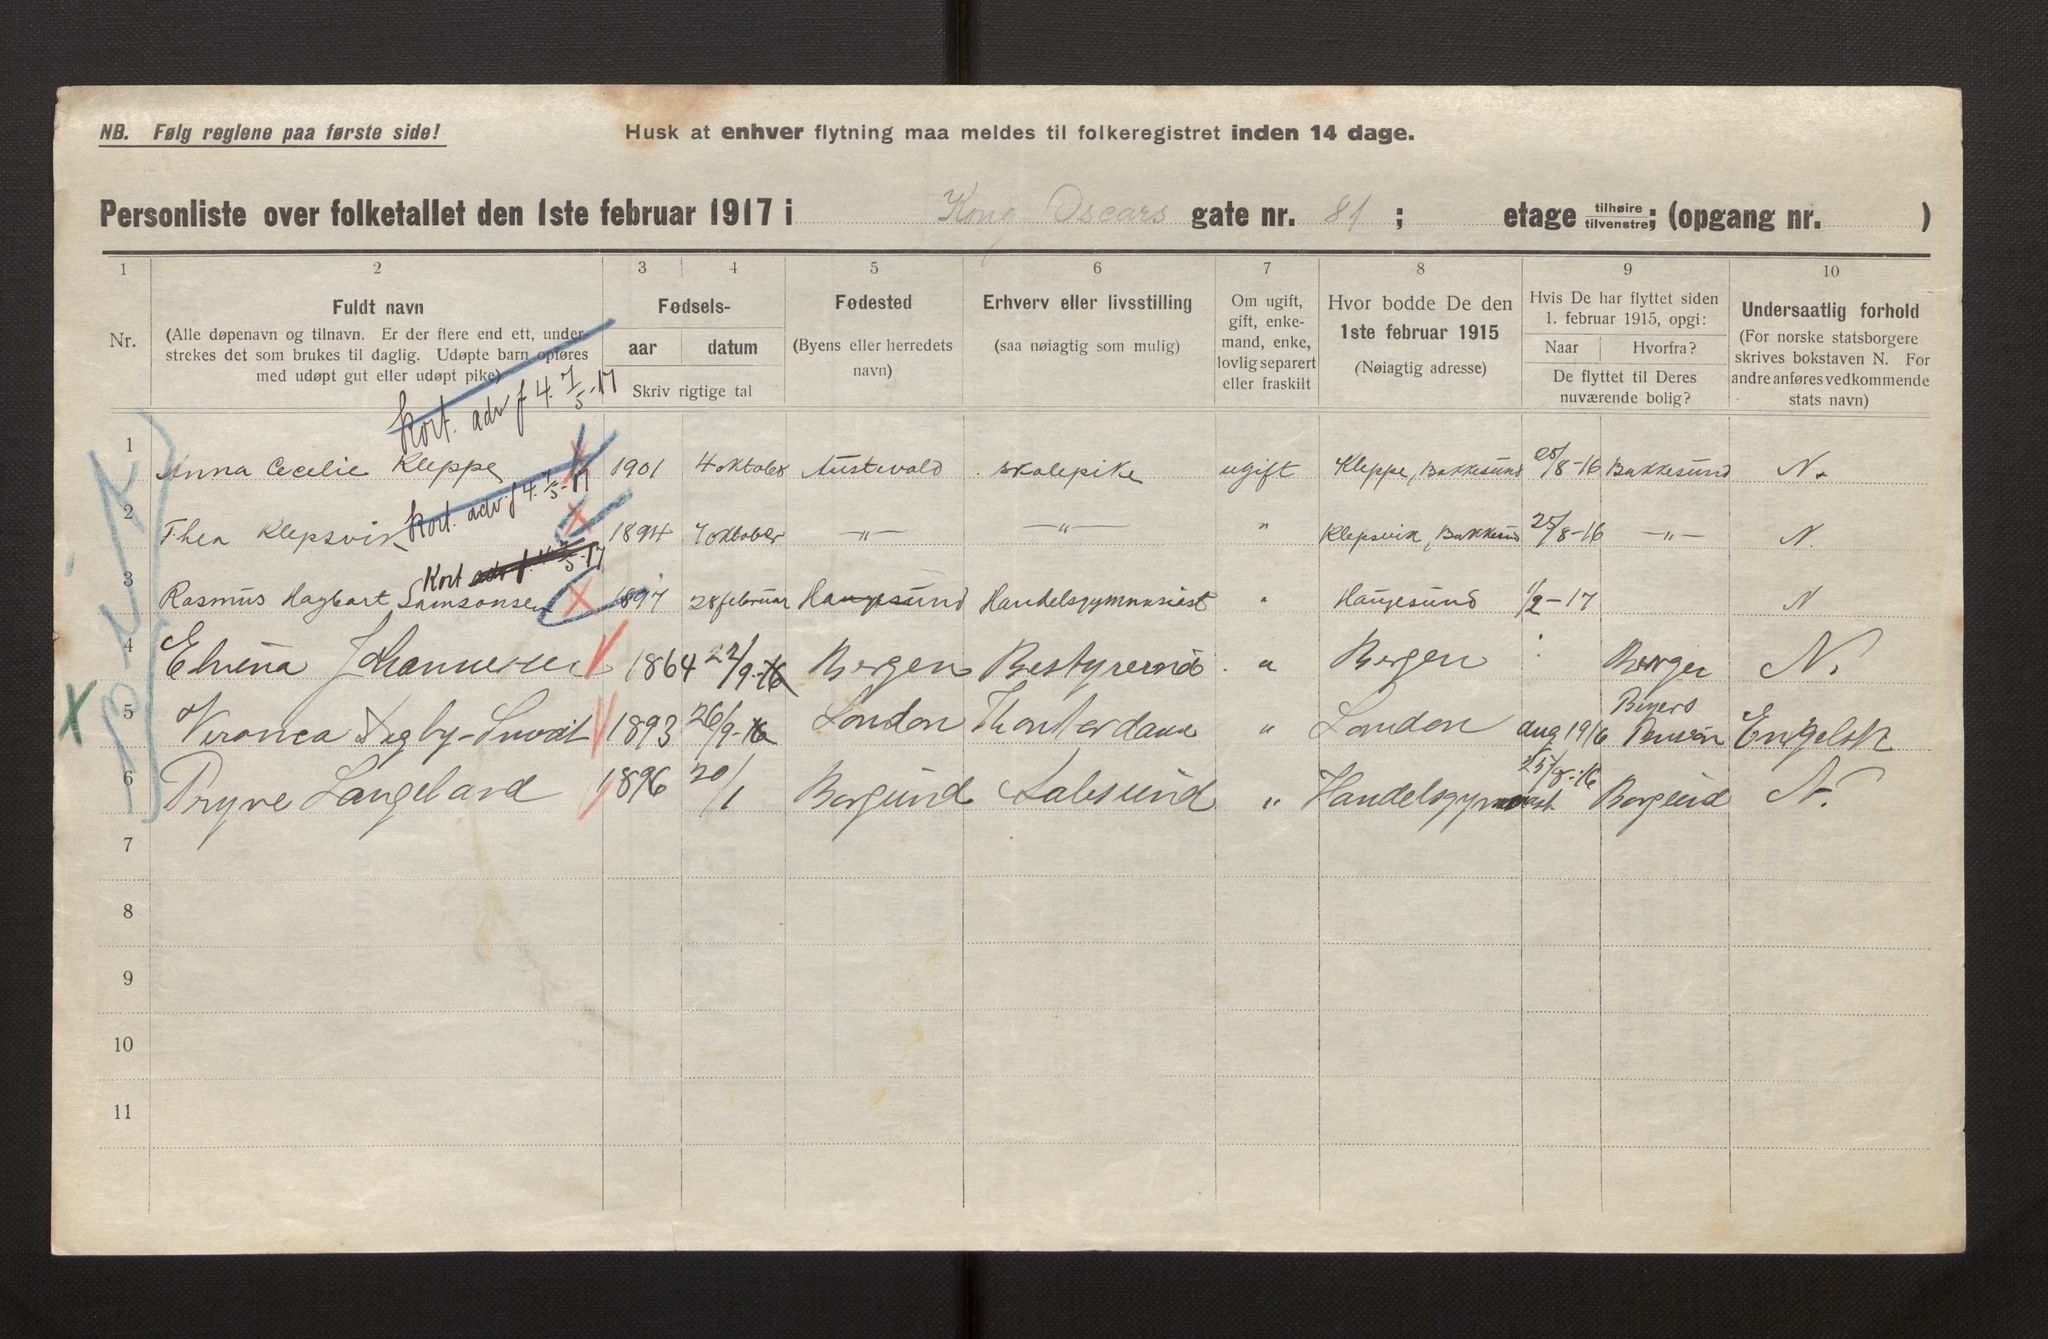 NB. Følg reglene paa første side! Husk at enhver flytning maa meldes til folkeregistret inden 14 dage.
Personliste over folketallet den 1ste februar 1917 i Kong Oscars gate nr. 81 ; etage tilhøire tilvenstre; (opgang nr. )
1 2 3 4 5 6 7 8 9 10
Nr.
Fuldt navn
(Alle døpenavn og tilnavn. Er der flere end ett, under-
strekes det som brukes til daglig. Udøpte barn opføres
med udøpt gut eller udøpt pike)
Fødsels-
aar datum
Skriv rigtige tal
Fødested
(Byens eller herredets
navn)
Erhverv eller livsstilling
(saa nøiagtig som mulig)
Om ugift,
gift, enke-
mand, enke,
lovlig separert
eller fraskilt
Hvor bodde De den
1ste februar 1915
(Nøiagtig adresse)
Hvis De har flyttet siden
1. februar 1915, opgi:
Naar Hvorfra?
De flyttet til Deres
nuværende bolig?
Undersaatlig forhold
(For norske statsborgere
skrives bokstaven N. For
andre anføres vedkommende
stats navn)
Kort. adv f 4. 7/5-17
1 Anna Cecelie Kleppe 1901 4 oktober Austevold skolepike ugift Kleppe, Bakkesund 25/8-16 Bakkesund N.
Kort. adv f 4. 7/5-17
2 Thea Klepsvik 1894 7 oktober —"— —"— " Klepsvik, Bakkesund 25/8-16 —"— N.
Kort adv f. 4. 7/5-17
3 Rasmus Hagbart Samsonsen 1897 28 februar Haugesund Handelsgymnasiast " Haugesund 1/2-17 N
4 Elvina Johannesen 1864 22/9-16 Bergen Bestyrerinde " Bergen Bergen N.
5 Veronica Digby- 1893 26/9-16 London " London aug 1916 Beyers Pension Engelsk
6 Langeland 1896 20/1 Borgund Aalesund " Handelsgymnasiast. 25/8-16 Borgund N.
7
8
9
10
11